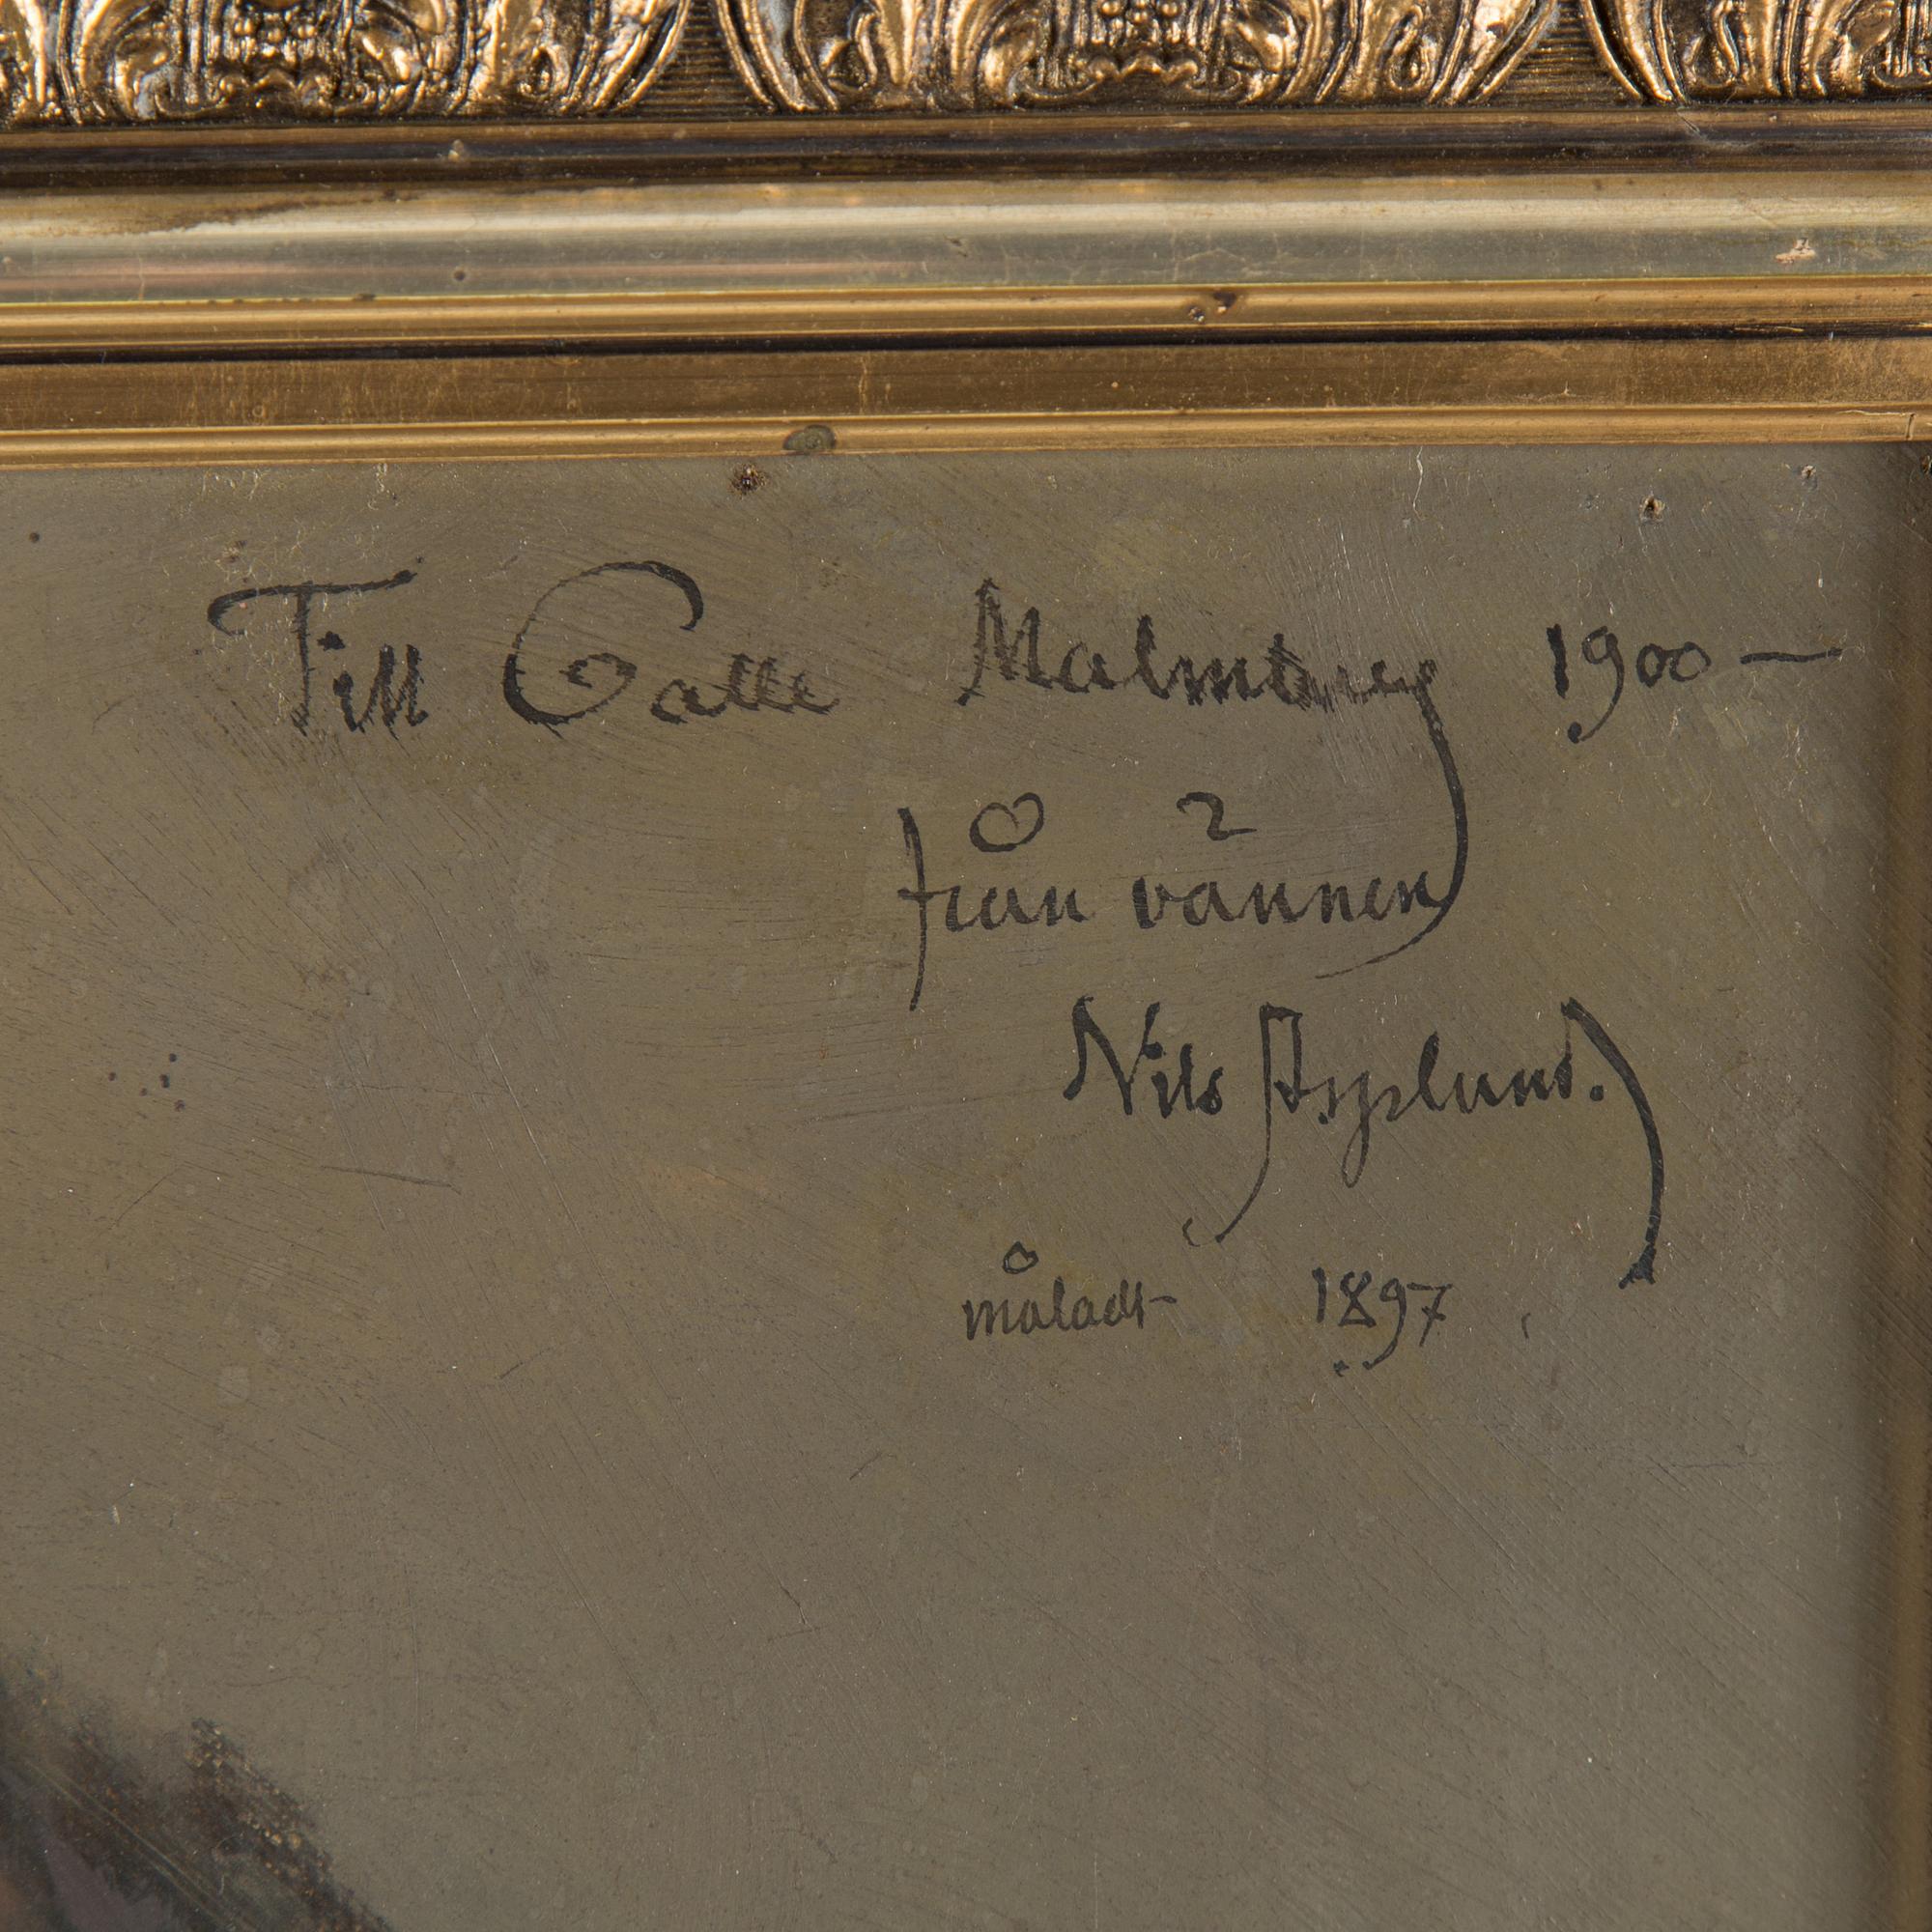 Till Calle Malmberg 1900—
från vännen
Nils Asplund.
måladt 1897